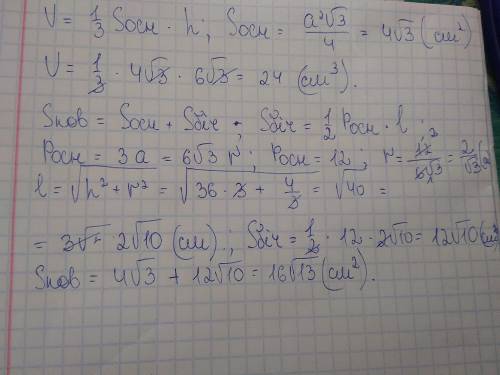 V = 1/3 Sосн · h ; Sосн = a²√3/4 = 4√3 (см²)
V = 1/3 · 4√3 · 6√3 = 24 (см³).
Sпов = Sосн + Sбіч ; Sбіч = 1/2 Pосн · l ;
Pосн = 3a = 6√3 r ; Pосн = 12 ; r = 12/6√3 = 2/√3
l = √h² + r² = √36 · 3 + 4/3 = √40 =
= 2√10 (см) ; Sбіч = 1/2 · 12 · 2√10 = 12√10 (см²
Sпов = 4√3 + 12√10 = 16√13 (см²).